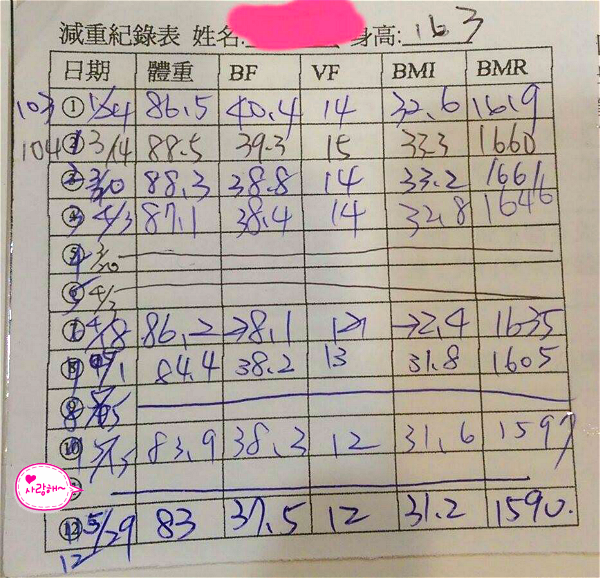 減重紀錄表 姓名: 身高: 163
日期 體重 BF VF BMI BMR
103 ① 86.5 40.4 14 32.6 1619
104 3/4 88.5 39.3 15 33.3 1660
88.3 38.8 14 33.2 1661
4/3 87.1 38.4 14 32.8 1646
⑤
⑥ 4/3
4/8 86.2 8.1 2.4 1635
84.4 38.2 13 31.8 1605
⑨
⑩ 5/15 83.9 38.3 12 31.6 1597
사랑해~
⑫ 5/29 83 37.5 12 31.2 1590.
12